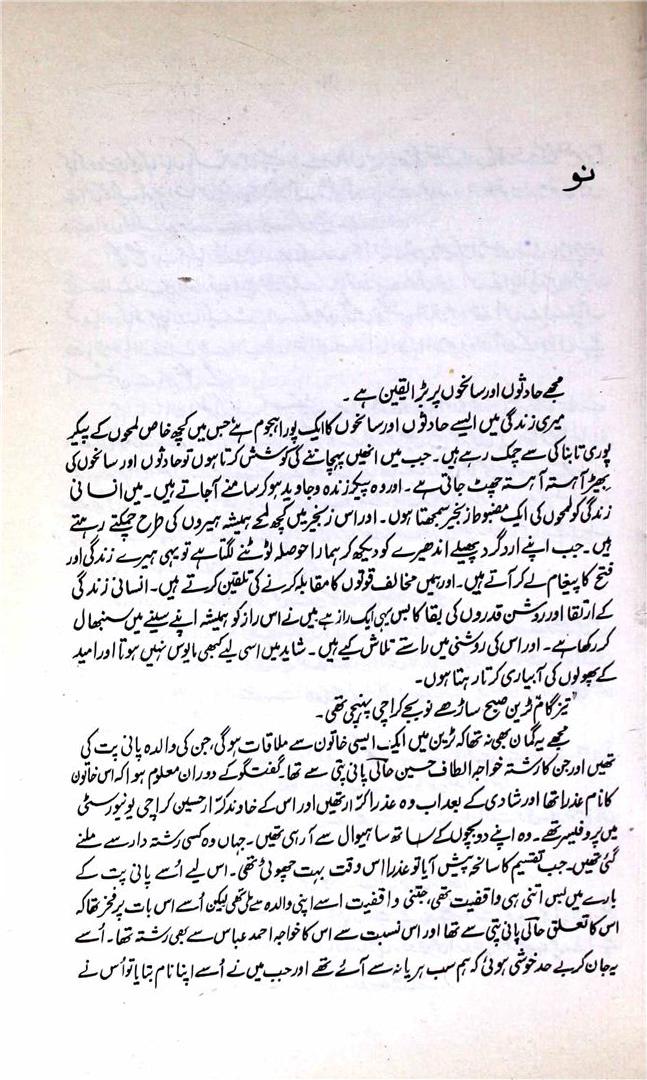 نو
مجھے حادثوں اور سانحوں پر بڑا یقین ہے۔
میری زندگی میں ایسے حادثوں اور سانحوں کا ایک پورا ہجوم ہے جس میں کچھ خاص لمحوں کے پیکر
پوری تابناکی سے چمک رہے ہیں۔ جب میں انھیں پہچاننے کی کوشش کرتا ہوں تو حادثوں اور سانحوں کی
بھیڑ آہستہ آہستہ چھٹ جاتی ہے۔ اور وہ پیکر زندہ و جاوید ہو کر سامنے آجاتے ہیں۔ میں انسانی
زندگی کو لمحوں کی ایک مضبوط زنجیر سمجھتا ہوں۔ اور اس زنجیر میں کچھ لمحے ہمیشہ ہیروں کی طرح چمکتے رہتے
ہیں۔ جب اپنے اردگرد پھیلے اندھیرے کو دیکھ کر ہمارا حوصلہ ٹوٹنے لگتا ہے تو یہی ہیرے زندگی اور
فتح کا پیغام لے کر آتے ہیں۔ اور ہمیں مخالف قوتوں کا مقابلہ کرنے کی تلقین کرتے ہیں۔ انسانی زندگی
کے ارتقا اور روشن قدروں کی بقا کا بس یہی ایک راز ہے میں نے اس راز کو ہمیشہ اپنے سینے میں سنبھال
کر رکھا ہے۔ اور اس کی روشنی میں راستے تلاش کیے ہیں۔ شاید میں اسی لیے کبھی مایوس نہیں ہوتا اور امید
کے پھولوں کی آبیاری کرتا رہتا ہوں۔
تیز گام ٹرین صبح ساڑھے نو بجے کراچی پہنچی تھی۔
مجھے یہ گمان بھی نہ تھا کہ ٹرین میں ایک ایسی خاتون سے ملاقات ہوگی، جن کی والدہ پانی پت کی
تھیں اور جن کا رشتہ خواجہ الطاف حسین حالی پانی پتی سے تھا۔ گفتگو کے دوران معلوم ہوا کہ اس خاتون
کا نام عذرا تھا اور شادی کے بعد اب وہ عذرا کرار تھیں اور اس کے خاوند کرار حسین کراچی یونیورسٹی
میں پروفیسر تھے۔ وہ اپنے دو بچوں کے ساتھ ساہیوال سے آرہی تھیں۔ جہاں وہ کسی رشتہ دار سے ملنے
گئی تھیں۔ جب تقسیم کا سانحہ پیش آیا تو عذرا اس وقت بہت چھوٹی تھی۔ اس لیے اُسے پانی پت کے
بارے میں بس اتنی ہی واقفیت تھی، جتنی واقفیت اسے اپنی والدہ سے ملی تھی لیکن اُسے اس بات پر فخر تھا کہ
اس کا تعلق حالی پانی پتی سے تھا اور اس نسبت سے اس کا خواجہ احمد عباس سے بھی رشتہ تھا۔ اُسے
یہ جان کر بے حد خوشی ہوئی کہ ہم سب ہریانہ سے آئے تھے اور جب میں نے اُسے اپنا نام بتایا تو اُس نے